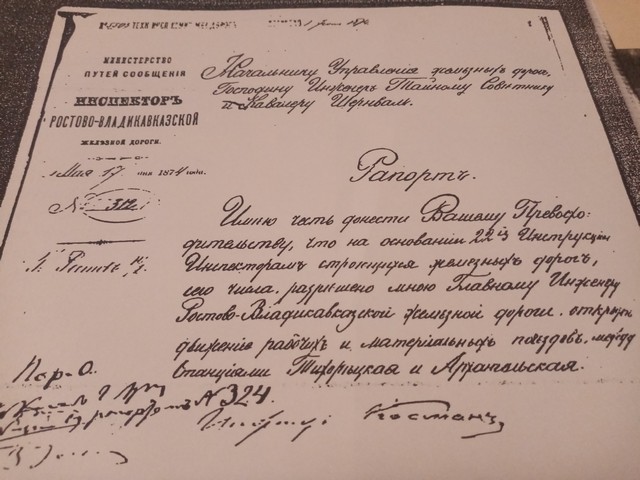 МИНИСТЕРСТВО
ПУТЕЙ СООБЩЕНІЯ
ИНСПЕКТОРЪ
РОСТОВО-ВЛАДИКАВКАЗСКОЙ
ЖЕЛѢЗНОЙ ДОРОГИ.
Мая 17 дня 1874 года.
№ 312
Начальнику Управленія желѣзныхъ дорогъ,
Господину Инженеръ Тайному Совѣтнику
и Кавалеру Шернваль.
Рапортъ.
Имѣю честь донести Вашему Превосхо-
дительству, что на основаніи 22 § Инструкціи
Инспекторамъ строющихся желѣзныхъ дорогъ,
сего числа разрешено мною Главному Инженеру
Ростово-Владикавказской желѣзной дороги открыть
движеніе рабочихъ и матеріальныхъ поѣздовъ между
станціями Тихорѣцкая и Архангельская.
рапортомъ № 324.